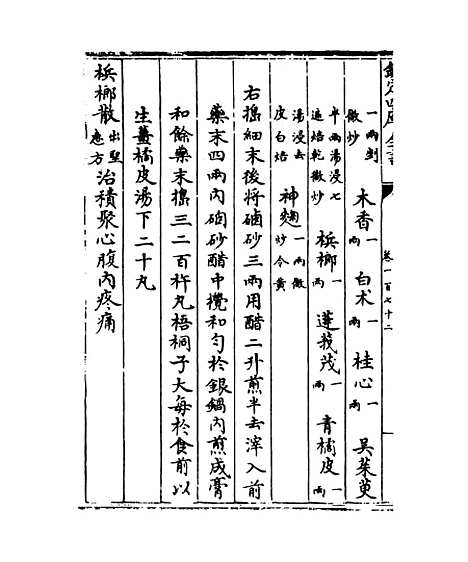 欽定四庫全書 卷一百七十二
一兩剉微炒 木香一兩 白术一兩 桂心一兩 吳茱萸
半兩湯浸七遍焙乾微炒 梹榔一兩 蓬莪茂一兩 青橘皮一兩
湯浸去皮白焙 神麴一兩微炒令黄
右搗細末後將硇砂三兩用醋二升煎半去滓入前
藥末四兩内硇砂醋中攪和勻於銀鍋内煎成膏
和餘藥末搗三二百杵丸梧桐子大每於食前以
生薑橘皮湯下二十丸
梹榔散出聖惠方治積聚心腹内疼痛